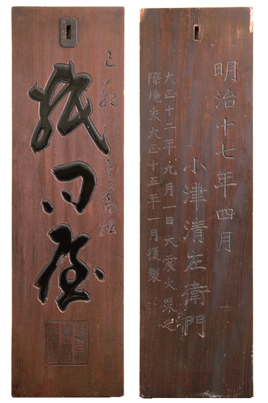 紙問屋
明治十七年四月
小津清左衛門
大正十二年九月一日大震火災之
際焼失大正十五年一月復製